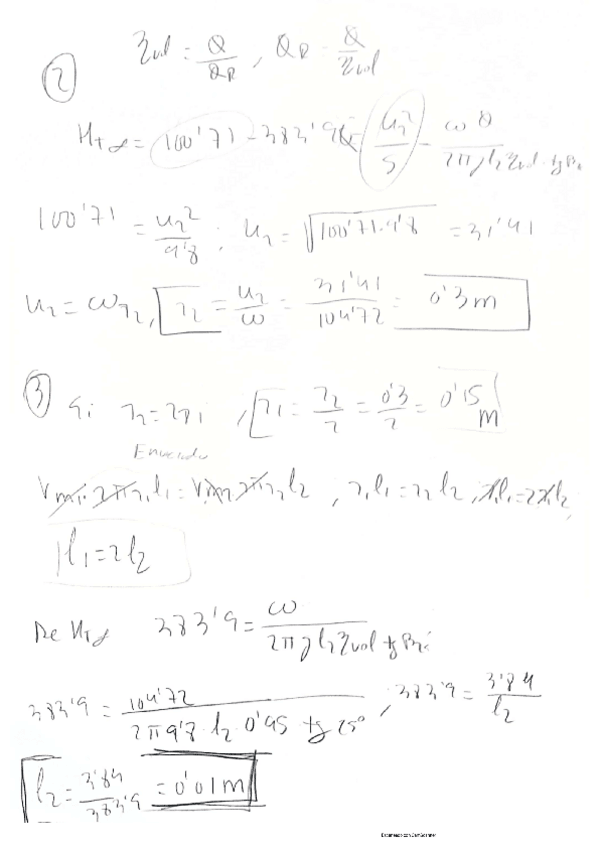 ② η_vol = Q/Q_R , Q_R = Q/η_vol
H_T∞ = 100'71 - 383'9Q = u₂²/g - ωQ/(2πg b₂ η_vol tg β₂)
100'71 = u₂²/9'8 ; u₂ = √(100'71·9'8) = 31'41
u₂ = ωr₂, r₂ = u₂/ω = 31'41/104'72 = 0'3m
③ Si r₂ = 2r₁ , r₁ = r₂/2 = 0'3/2 = 0'15 m
V_m1·2πr₁b₁ = V_m2·2πr₂b₂ , r₁b₁ = r₂b₂ , r₁b₁ = 2r₁b₂
b₁ = 2b₂
De H_T∞ 383'9 = ω/(2πg b₂ η_vol tg β₂)
383'9 = 104'72/(2π 9'8 · b₂ · 0'95 tg 25°) , 383'9 = 3'84/b₂
b₂ = 3'84/383'9 = 0'01m